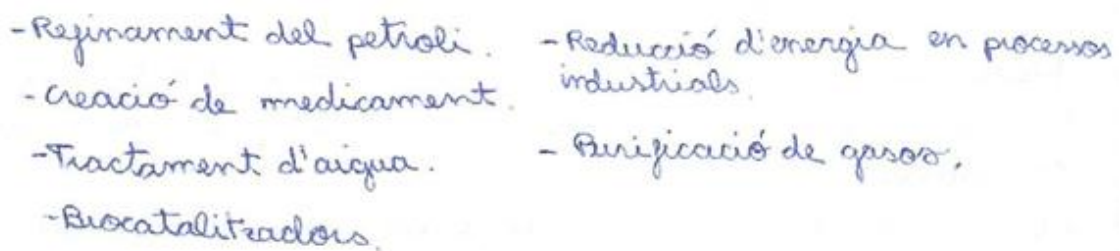 - Refinament del petroli.
- Creació de medicament.
- Tractament d'aigua.
- Biocatalitzadors.
- Reducció d'energia en processos
industrials.
- Purificació de gasos.